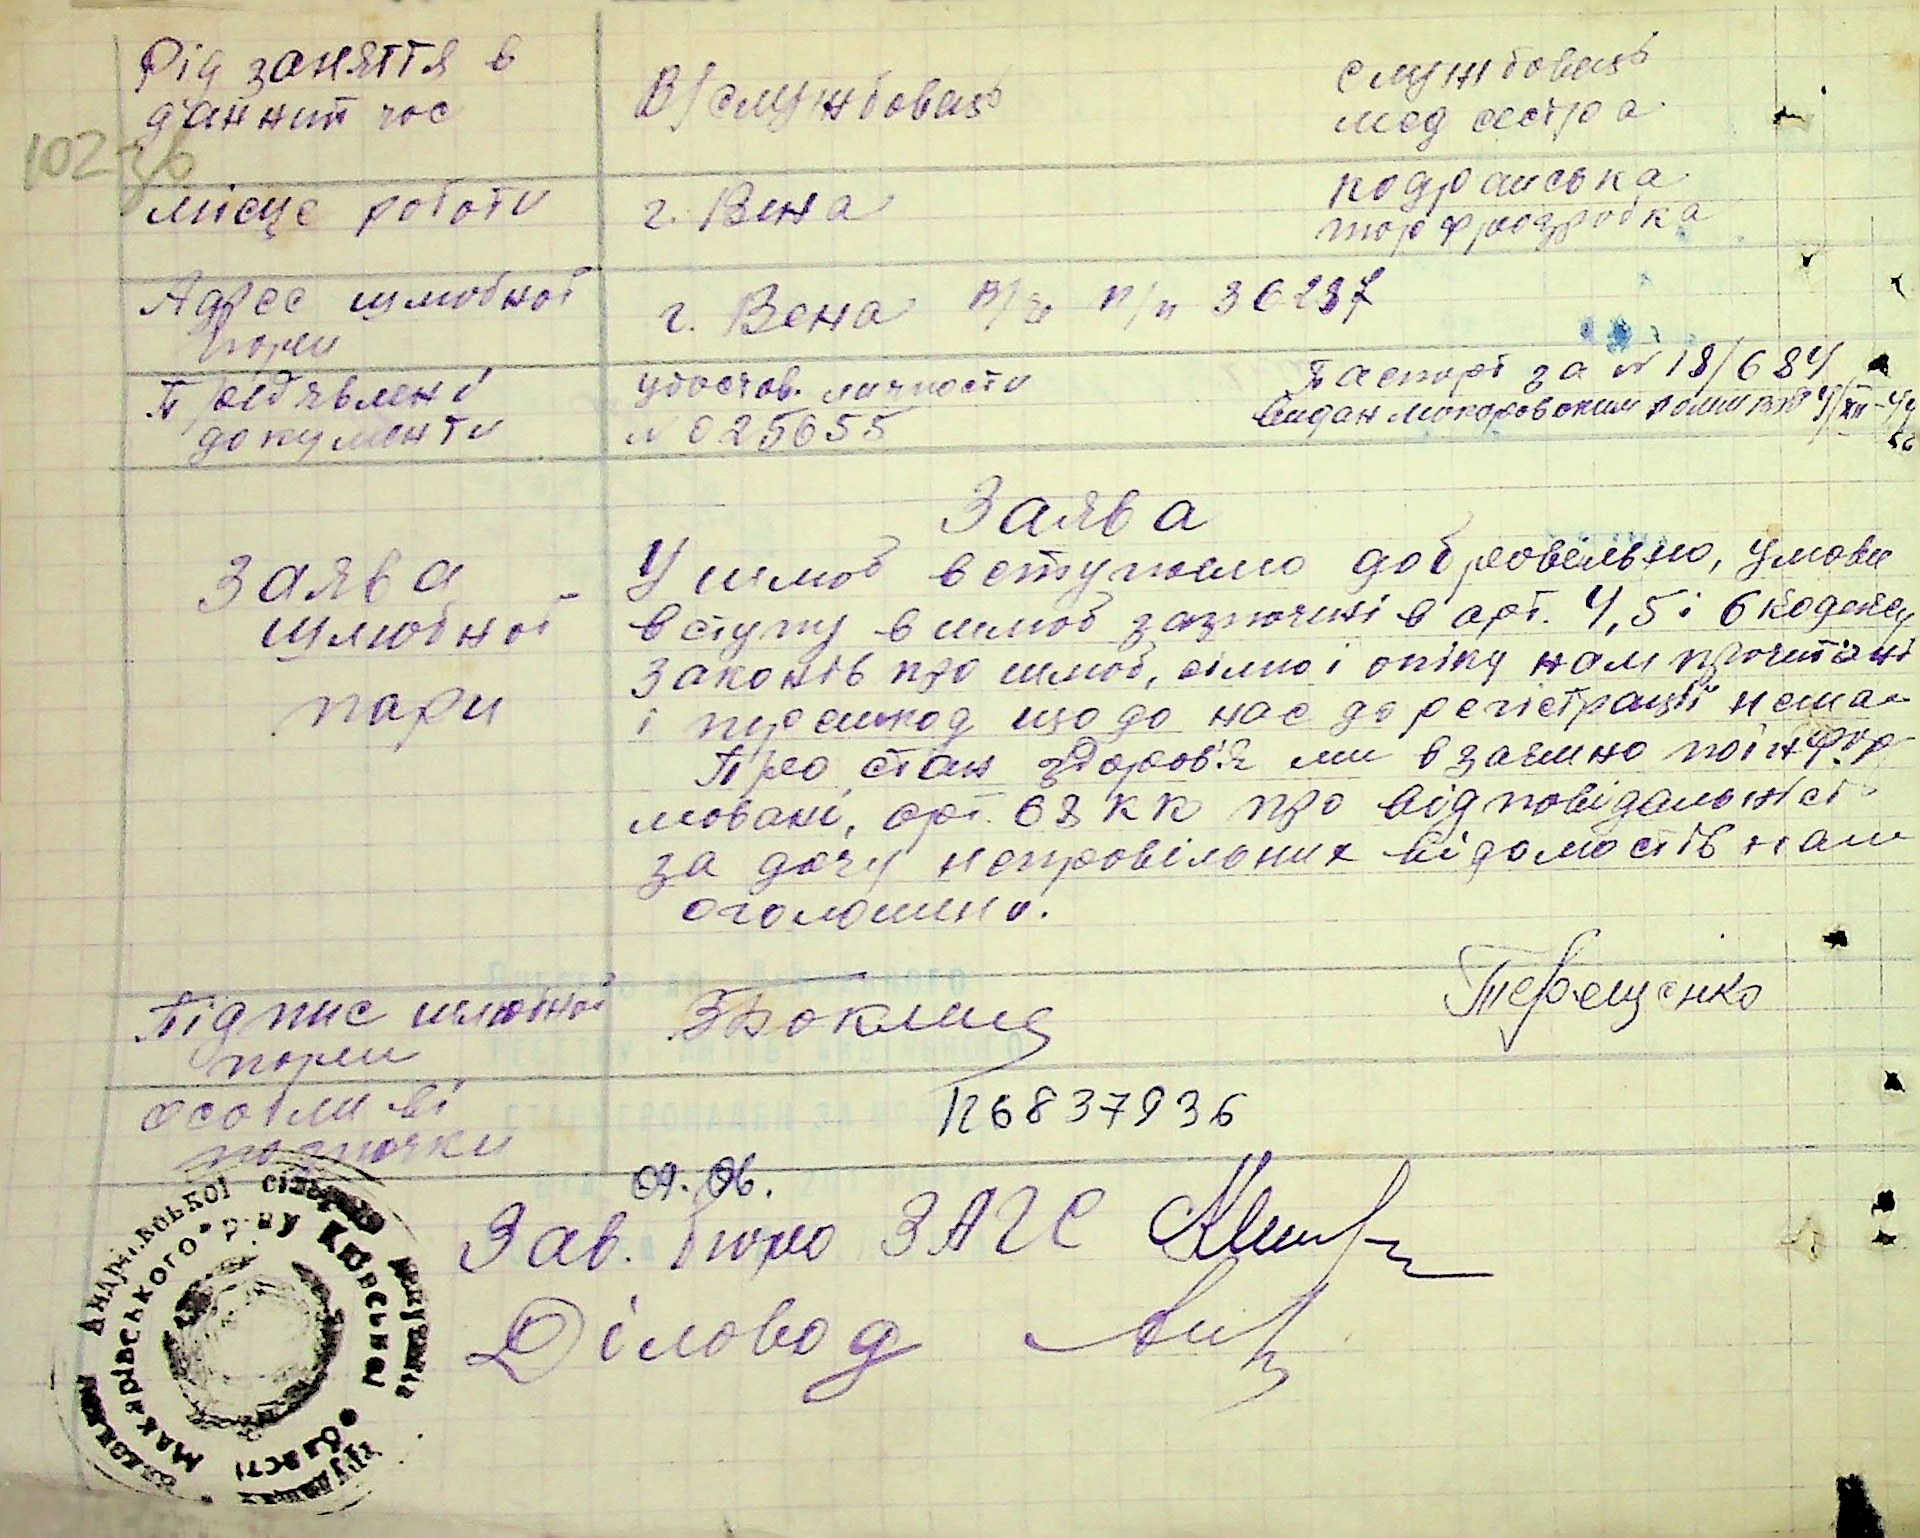 Рід заняття в
данний час
В/службовець
службовець
мед сестра
102 зв
місце роботи
г. Вена
Кодранська
торфрозробка
Адрес шлюбної
пари
г. Вена В/ч П/п 36237
Предʼявлені
документи
удостов. личности
№ 025655
Паспорт за № 18/684
Видан Макаровским
Заява
Заява
шлюбної
пари
У шлюб вступаємо добровільно, умови
вступу в шлюб зазначені в арт. 4, 5 і 6 кодексу
законів про шлюб, сімю і опіку нам прочитані
і перешкод щодо нас до регістрації нема
Про стан здоров'я ми взаємно поінфор
мовані, арт. 68 КК про відповідальність
за дачу неправільних відомостів нам
оголошено.
Підпис шлюбної
пари
Терещенко
Особливі
позначки
126837936
04. 06.
Зав. бюро ЗАГС
Діловод
Андріївської сільської ради депутатів трудящих
Макарівського р-ну Київської області